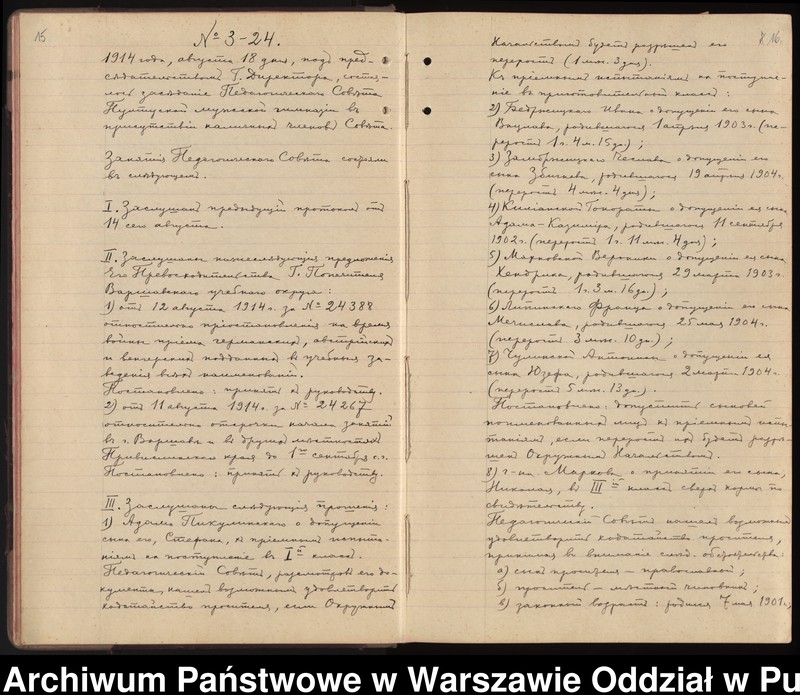 15
№ 3-24.
1914 года, августа 18 дня, подъ пред-
сѣдательствомъ Г. Директора, состоя-
лось засѣданіе Педагогическаго Совѣта
Пултуской мужской гимназіи въ
присутствіи наличныхъ членовъ Совѣта.
Занятія Педагогическаго Совѣта состояли
въ слѣдующемъ.
I. Заслушанъ предыдущій протоколъ отъ
14 сего августа.
II. Заслушаны нижеслѣдующія предложенія
Его Превосходительства Г. Попечителя
Варшавскаго учебнаго округа:
1) отъ 12 августа 1914 г. за № 24388
относительно пріостановленія на время
войны пріема германскихъ, австрійскихъ
и венгерскихъ подданныхъ въ учебныя за-
веденія всѣхъ наименованій.
Постановлено: принять къ руководству.
2) отъ 11 августа 1914 г. за № 24267
относительно отсрочки начала занятій
въ г. Варшавѣ и въ другихъ мѣстностяхъ
Привислинскаго края до 1го сентября с.г.
Постановлено: принять къ руководству.
III. Заслушаны слѣдующія прошенія:
1) Адама Пикулинскаго о допущеніи
сына его, Стефана, къ пріемнымъ испыта-
ніямъ на поступленіе въ I й классъ.
Педагогическій Совѣтъ, разсмотрѣвъ его до-
кументы, нашелъ возможнымъ удовлетворить
ходатайство просителя, если Окружнымъ
16.
Начальствомъ будетъ разрѣшенъ его
переростъ (1 мѣс. 3 дня).
Къ пріемнымъ испытаніямъ на поступле-
ніе въ приготовительный классъ:
2) Ивана о допущеніи его сына
Вацлава, родившагося 1 апрѣля 1903 г. (пе-
реростъ 1 г. 4 м. 15 дн.);
3) Чеслава о допущеніи его
сына Збигнева, родившагося 19 апрѣля 1904 г.
(переростъ 4 мѣс. 4 дн.);
4) о допущеніи ея сына
Адама-Казимира, родившагося 11 сентября
1902 г. (переростъ 1 г. 11 мѣс. 4 дн);
5) Марковской Вероники о допущеніи ея сына
Хенрика, родившагося 29 марта 1903 г.
(переростъ 1 г. 3 м. 16 дн.);
6) Липинскаго Франца о допущеніи его сына
Мечислава, родившагося 25 мая 1904 г.
(переростъ 3 мѣс. 10 дн.);
7) Антонины о допущеніи ея
сына Юзефа, родившагося 2 марта 1904 г.
(переростъ 5 мѣс. 13 дн.).
Постановлено: допустить сыновей
поименованныхъ лицъ къ пріемнымъ испы-
таніямъ, если переростъ ихъ будетъ разрѣ-
шенъ Окружнымъ Начальствомъ.
8) г-на Маркова о принятіи его сына,
Николая, въ III й классъ сверхъ нормы по
свидѣтельству.
Педагогическій Совѣтъ нашелъ возможнымъ
удовлетворить ходатайство просителя,
принимая въ вниманіе слѣд. обстоятельства:
а) сынъ просителя – православный;
б) проситель – мѣстный чиновникъ;
в) законный возрастъ: родился 7 мая 1901 г.;
Archiwum Państwowe w Warszawie Oddział w Pu